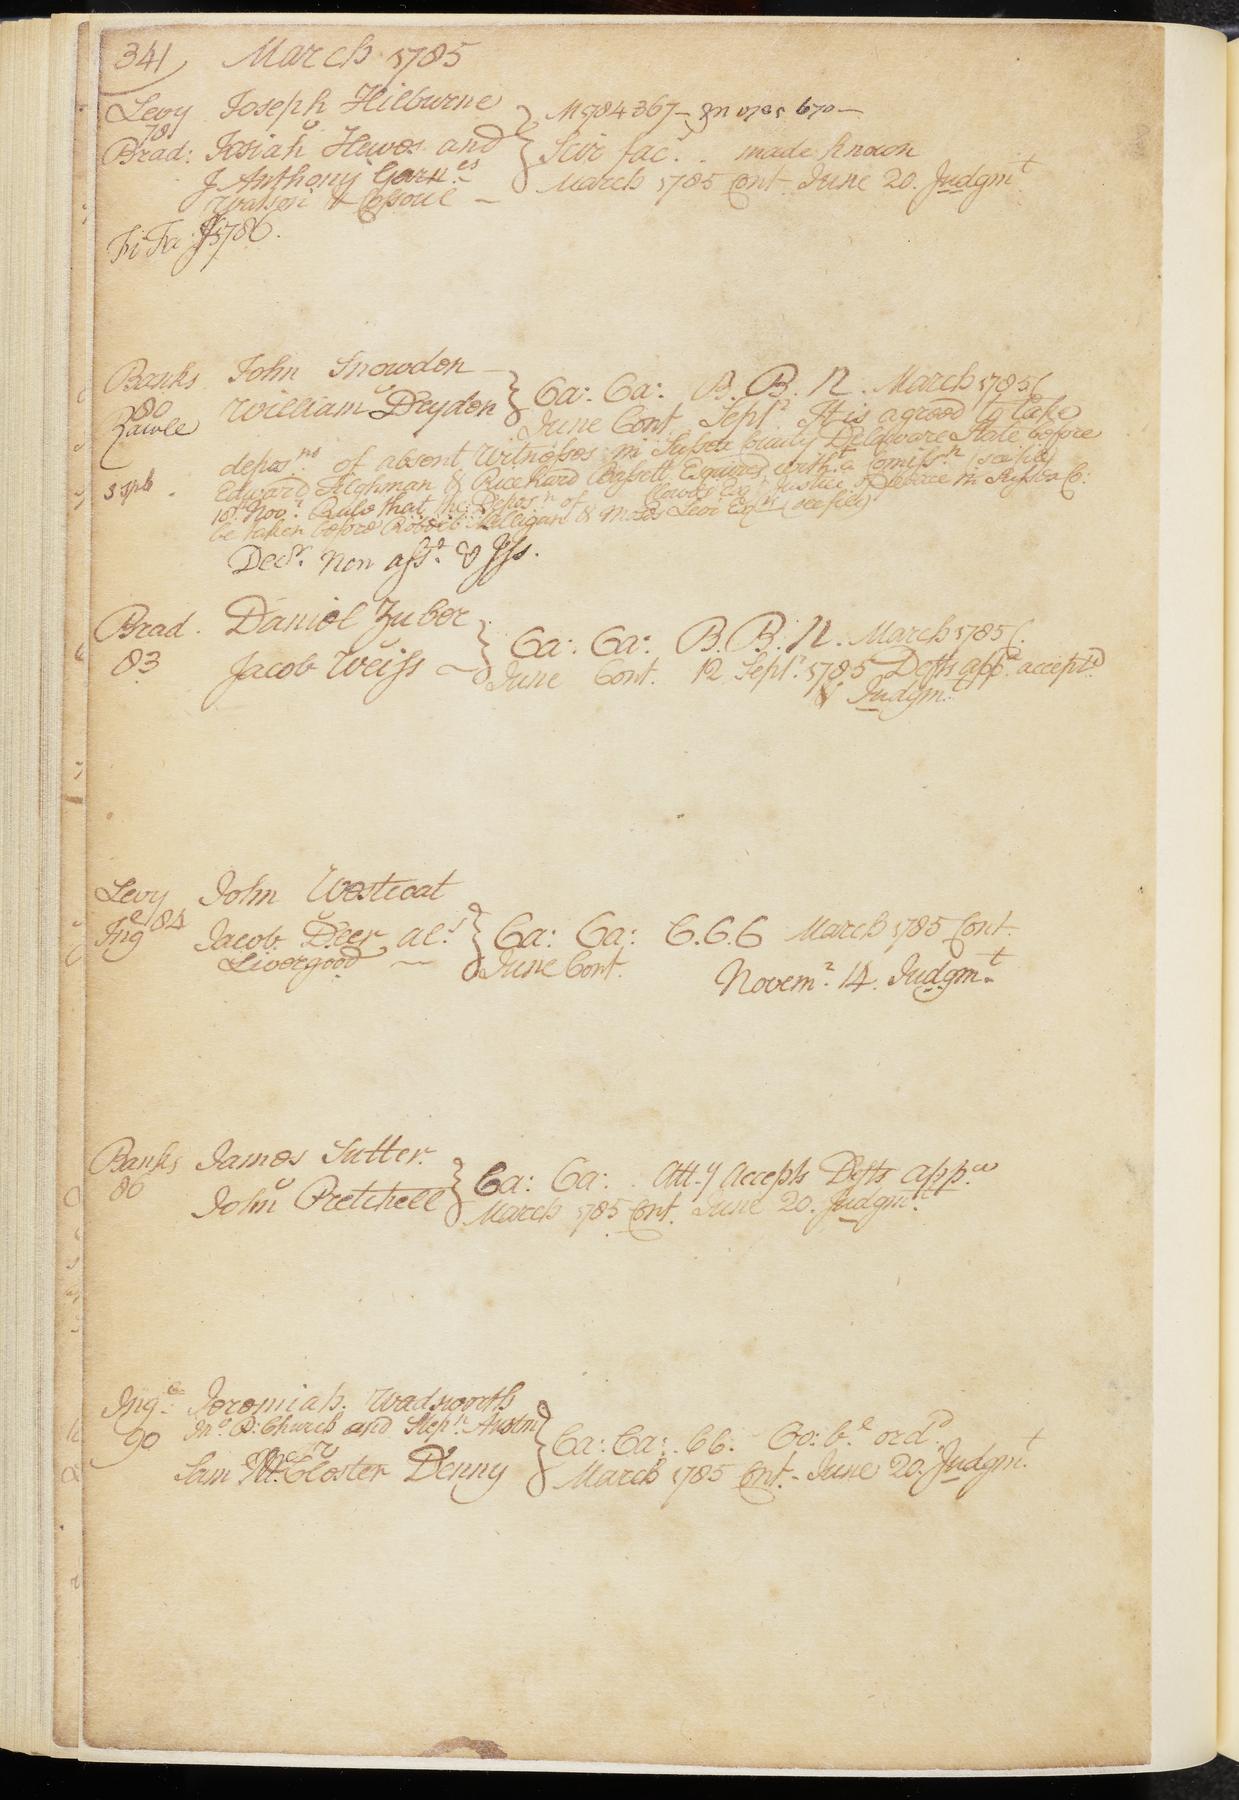 341 March 1785
Levy Joseph Hilburne
78 M 984 367 -
Brad: Josiah Hewes and Scir fac: . made known
Anthony Garn.es March 1785 Cont June 20. Judgm.t
Fi Fa J 1786.
Banks John Snowden
80 William Dryden Ca: Ca: B. B. N. March 1785 C
Rawle June Cont. Sept.r It is agreed to take
depos.ns of absent Witnesses in Sussex County Delaware State before
3 Sept. Edward Tilghman & Rickard Bassett Esquires with.t a Comiss.n (see file)
10th Nov.r Rule that the Depos.n of Clowes Esq.r Justice of Peace in Sussex Co:
be taken before Robert Milligan & Moses Levi Esq.rs (see file)
Dec.r Non ass.t & Iss.
Brad. Daniel Zuber
83 Jacob Weiss Ca: Ca: B. B. N. March 1785 C.
June Cont. 12 Sept.r 1785 Defts app.a accept.d
& Judgm.t
Levy John Westcoat
84
Ing.e Jacob Deer al.s Ca: Ca: C.C.C March 1785 Cont.
Livergood June Cont. Novem.r 14. Judgm.t
Banks James Sutter.
86 John Pretchell Ca: Ca: . Att.y Accepts Defts app.a
March 1785 Cont. June 20. Judgm.t
Ing.e Jeremiah Wadsworth
90 Jn.o B. Church and Step.n Austin Ca: Ca: . CC. Co: b.l ord.
Sam M.cCloster Denny March 1785 Cont. June 20. Judgm.t